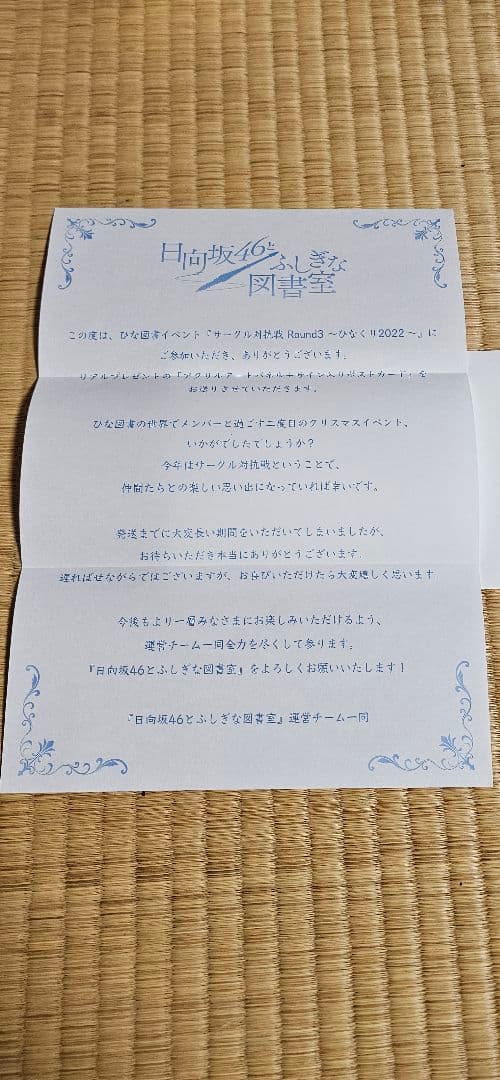 日向坂46とふしぎな図書室
この度は、ひな図書イベント『サークル対抗戦 Raund3 ～ひなくり2022～』に
ご参加いただき、ありがとうございます。
リアルプレゼントの『アクリルアートパネル＋サイン入りポストカード』を
お送りさせていただきます。
ひな図書の世界でメンバーと過ごす二度目のクリスマスイベント、
いかがでしたでしょうか？
今年はサークル対抗戦ということで、
仲間たちとの楽しい思い出になっていれば幸いです。
発送までに大変長い期間をいただいてしまいましたが、
お待ちいただき本当にありがとうございます。
遅ればせながらではございますが、お喜びいただけたら大変嬉しく思います
今後もより一層みなさまにお楽しみいただけるよう、
運営チーム一同全力を尽くして参ります。
『日向坂46とふしぎな図書室』をよろしくお願いいたします！
『日向坂46とふしぎな図書室』運営チーム一同